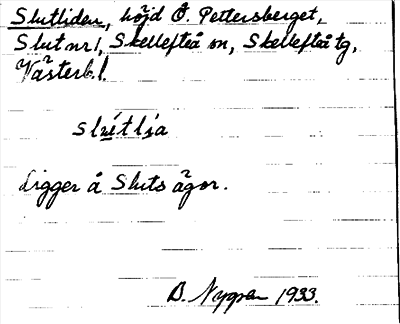 Slutliden, höjd Ö. Pettersberget,
Slut nr 1, Skellefteå sn, Skellefteå tg,
Västerb. l.
Ligger å Sluts ägor.
B. Nygren 1933.